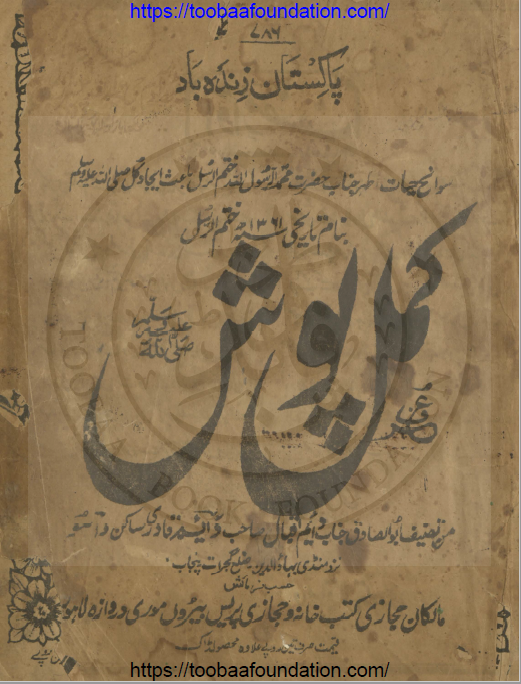 https://toobaafoundation.com/
۷۸۶
پاکستان زندہ باد
سوانح حیات اطہر جناب حضرت محمد رسول اللہ ختم الرسل باعث ایجاد کل صلی اللہ علیہ وسلم
بنام تاریخی ۱۳۶۱ ختم الرسل
کمل پوش
صلی اللہ علیہ وسلم
من تصنیف ابوالصادق جناب اقبال صاحب دائم قادری ساکن
نزد منڈی بہاؤالدین ضلع گجرات پنجاب
حسب فرمائش
مالکان حجازی کتب خانہ و حجازی پریس بیرون موری دروازہ لاہور
قیمت صرف تین روپے علاوہ محصولڈاک
https://toobaafoundation.com/